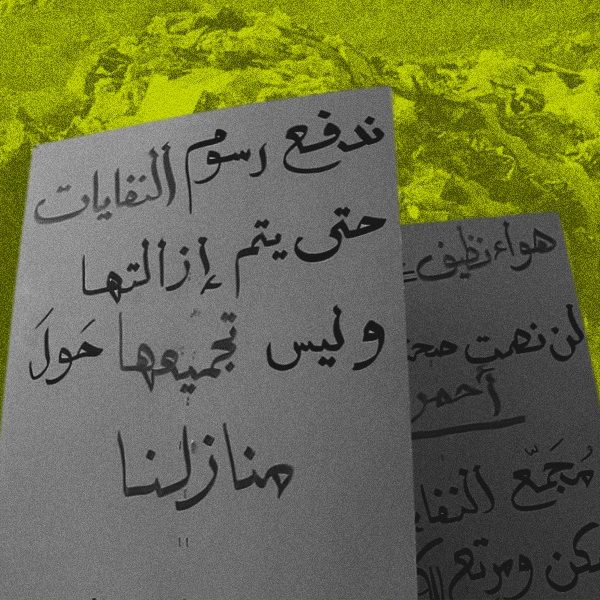 ندفع رسوم النفايات
حتى يتم إزالتها
وليس تجميعها حَولَ
منازلنا
هواء نظيف
لن نصمت
أحمر
مُجَمّع
ومرتع